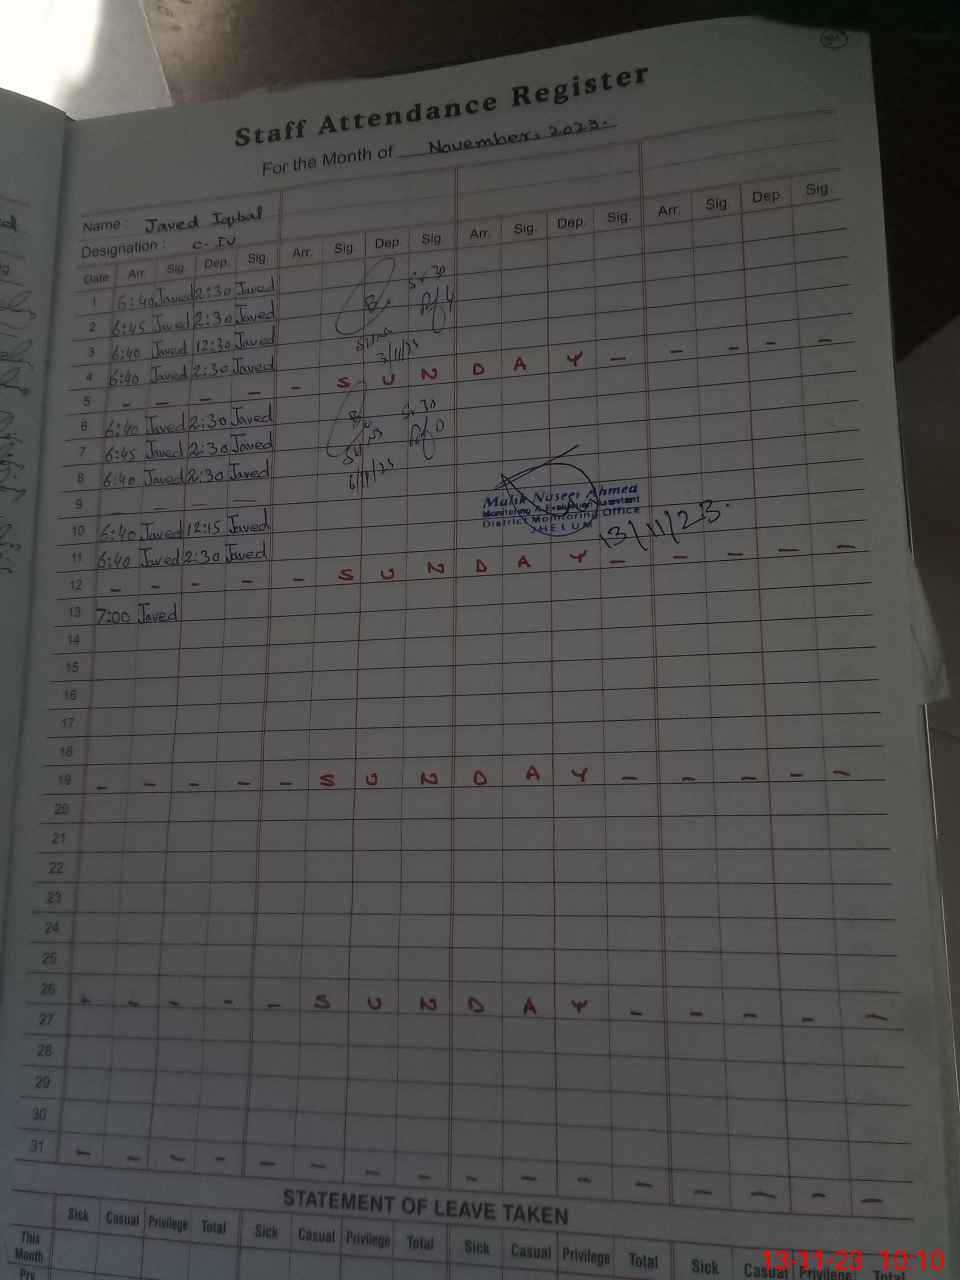 Staff Attendance Register
For the Month of November, 2023.
Name : Javed Iqbal
Designation : C-IV
Date Arr. Sig. Dep. Sig. Arr. Sig. Dep. Sig. Arr. Sig. Dep. Sig. Arr. Sig. Dep. Sig.
1 6:40 Javed 2:30 Javed
2 6:45 Javed 2:30 Javed
3 6:40 Javed 12:30 Javed
3/11/23
4 6:40 Javed 2:30 Javed
5 - - - - - S U N D A Y - - - - -
6 6:40 Javed 2:30 Javed
7 6:45 Javed 2:30 Javed
8 6:40 Javed 2:30 Javed
6/11/23
9 - - - -
Malik Naseer Ahmed
Monitoring & Evaluation Assistant
District Monitoring Office
JHELUM
13/11/23.
10 6:40 Javed 12:15 Javed
11 6:40 Javed 2:30 Javed
12 - - - - - S U N D A Y - - - - -
13 7:00 Javed
14
15
16
17
18
19 - - - - - S U N D A Y - - - - -
20
21
22
23
24
25
26 - - - - - S U N D A Y - - - - -
27
28
29
30
31 - - - - - - - - - - - - - - - -
STATEMENT OF LEAVE TAKEN
Sick Casual Privilege Total Sick Casual Privilege Total Sick Casual Privilege Total Sick Casual Privilege Total
This Month
Prv
13-11-23 10:10